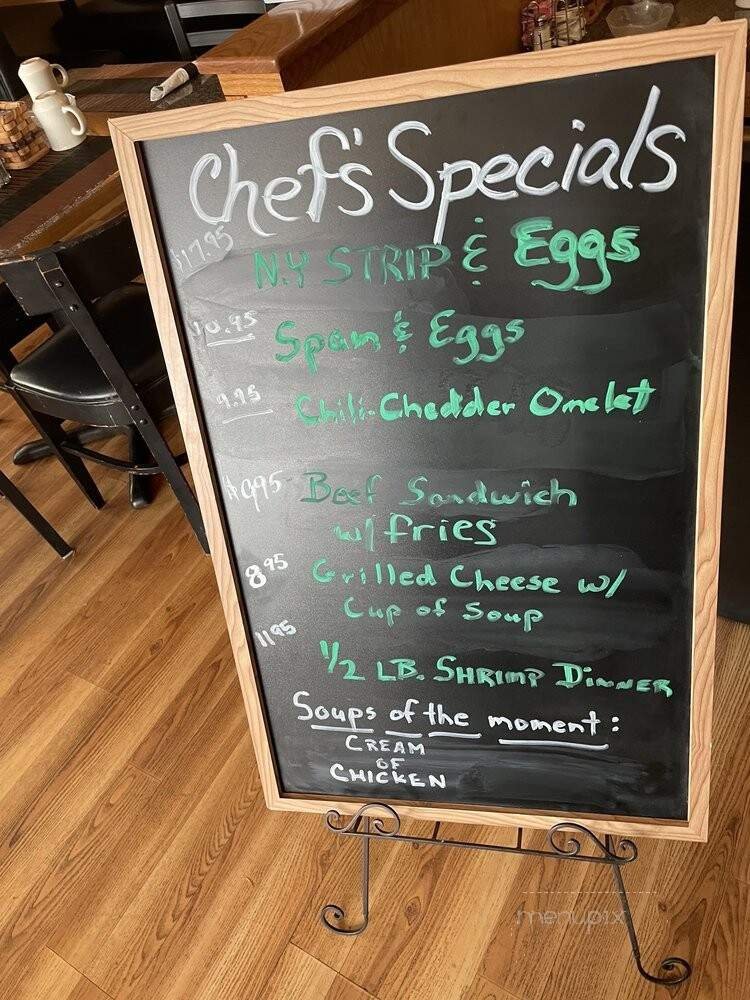 Chef's Specials
$17.95 N.Y STRIP & Eggs
10.95 Spam & Eggs
9.95 Chili-Chedder Omelet
$9.95 Beef Sandwich
w/ fries
8.95 Grilled Cheese w/
Cup of Soup
11.95 1/2 LB. SHRIMP DINNER
Soups of the moment:
CREAM
OF
CHICKEN
menupix